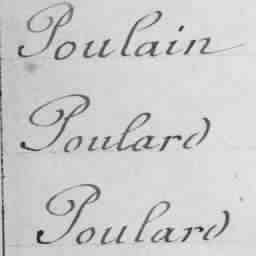 Poulain
Poulard
Poulard